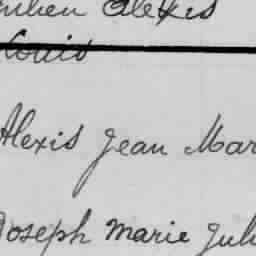 Alexis
Louis
Alexis Jean Mar
Joseph Marie Juli